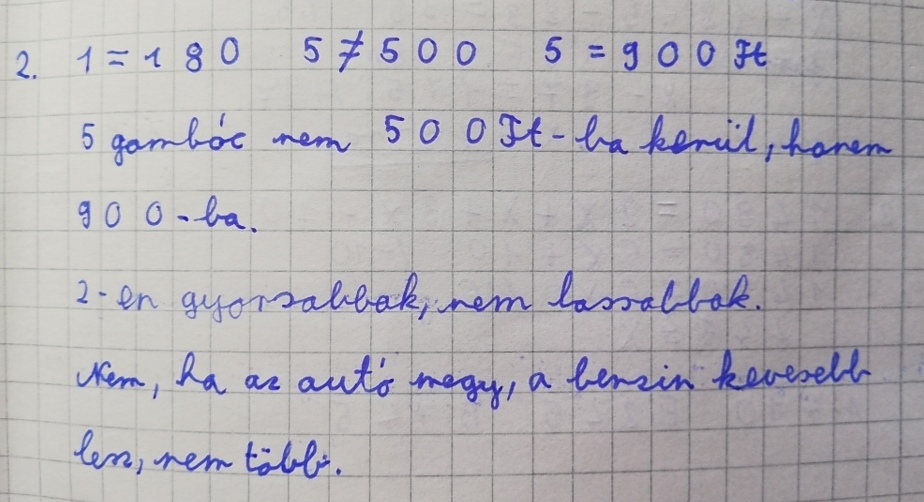 2. 1 = 180 5 ≠ 500 5 = 900 Ft
5 gombóc nem 500 Ft-ba kerül, hanem
900-ba.
2-en gyorsabbak, nem lassabbak.
Nem, ha az autó megy, a benzin kevesebb
lesz, nem több.